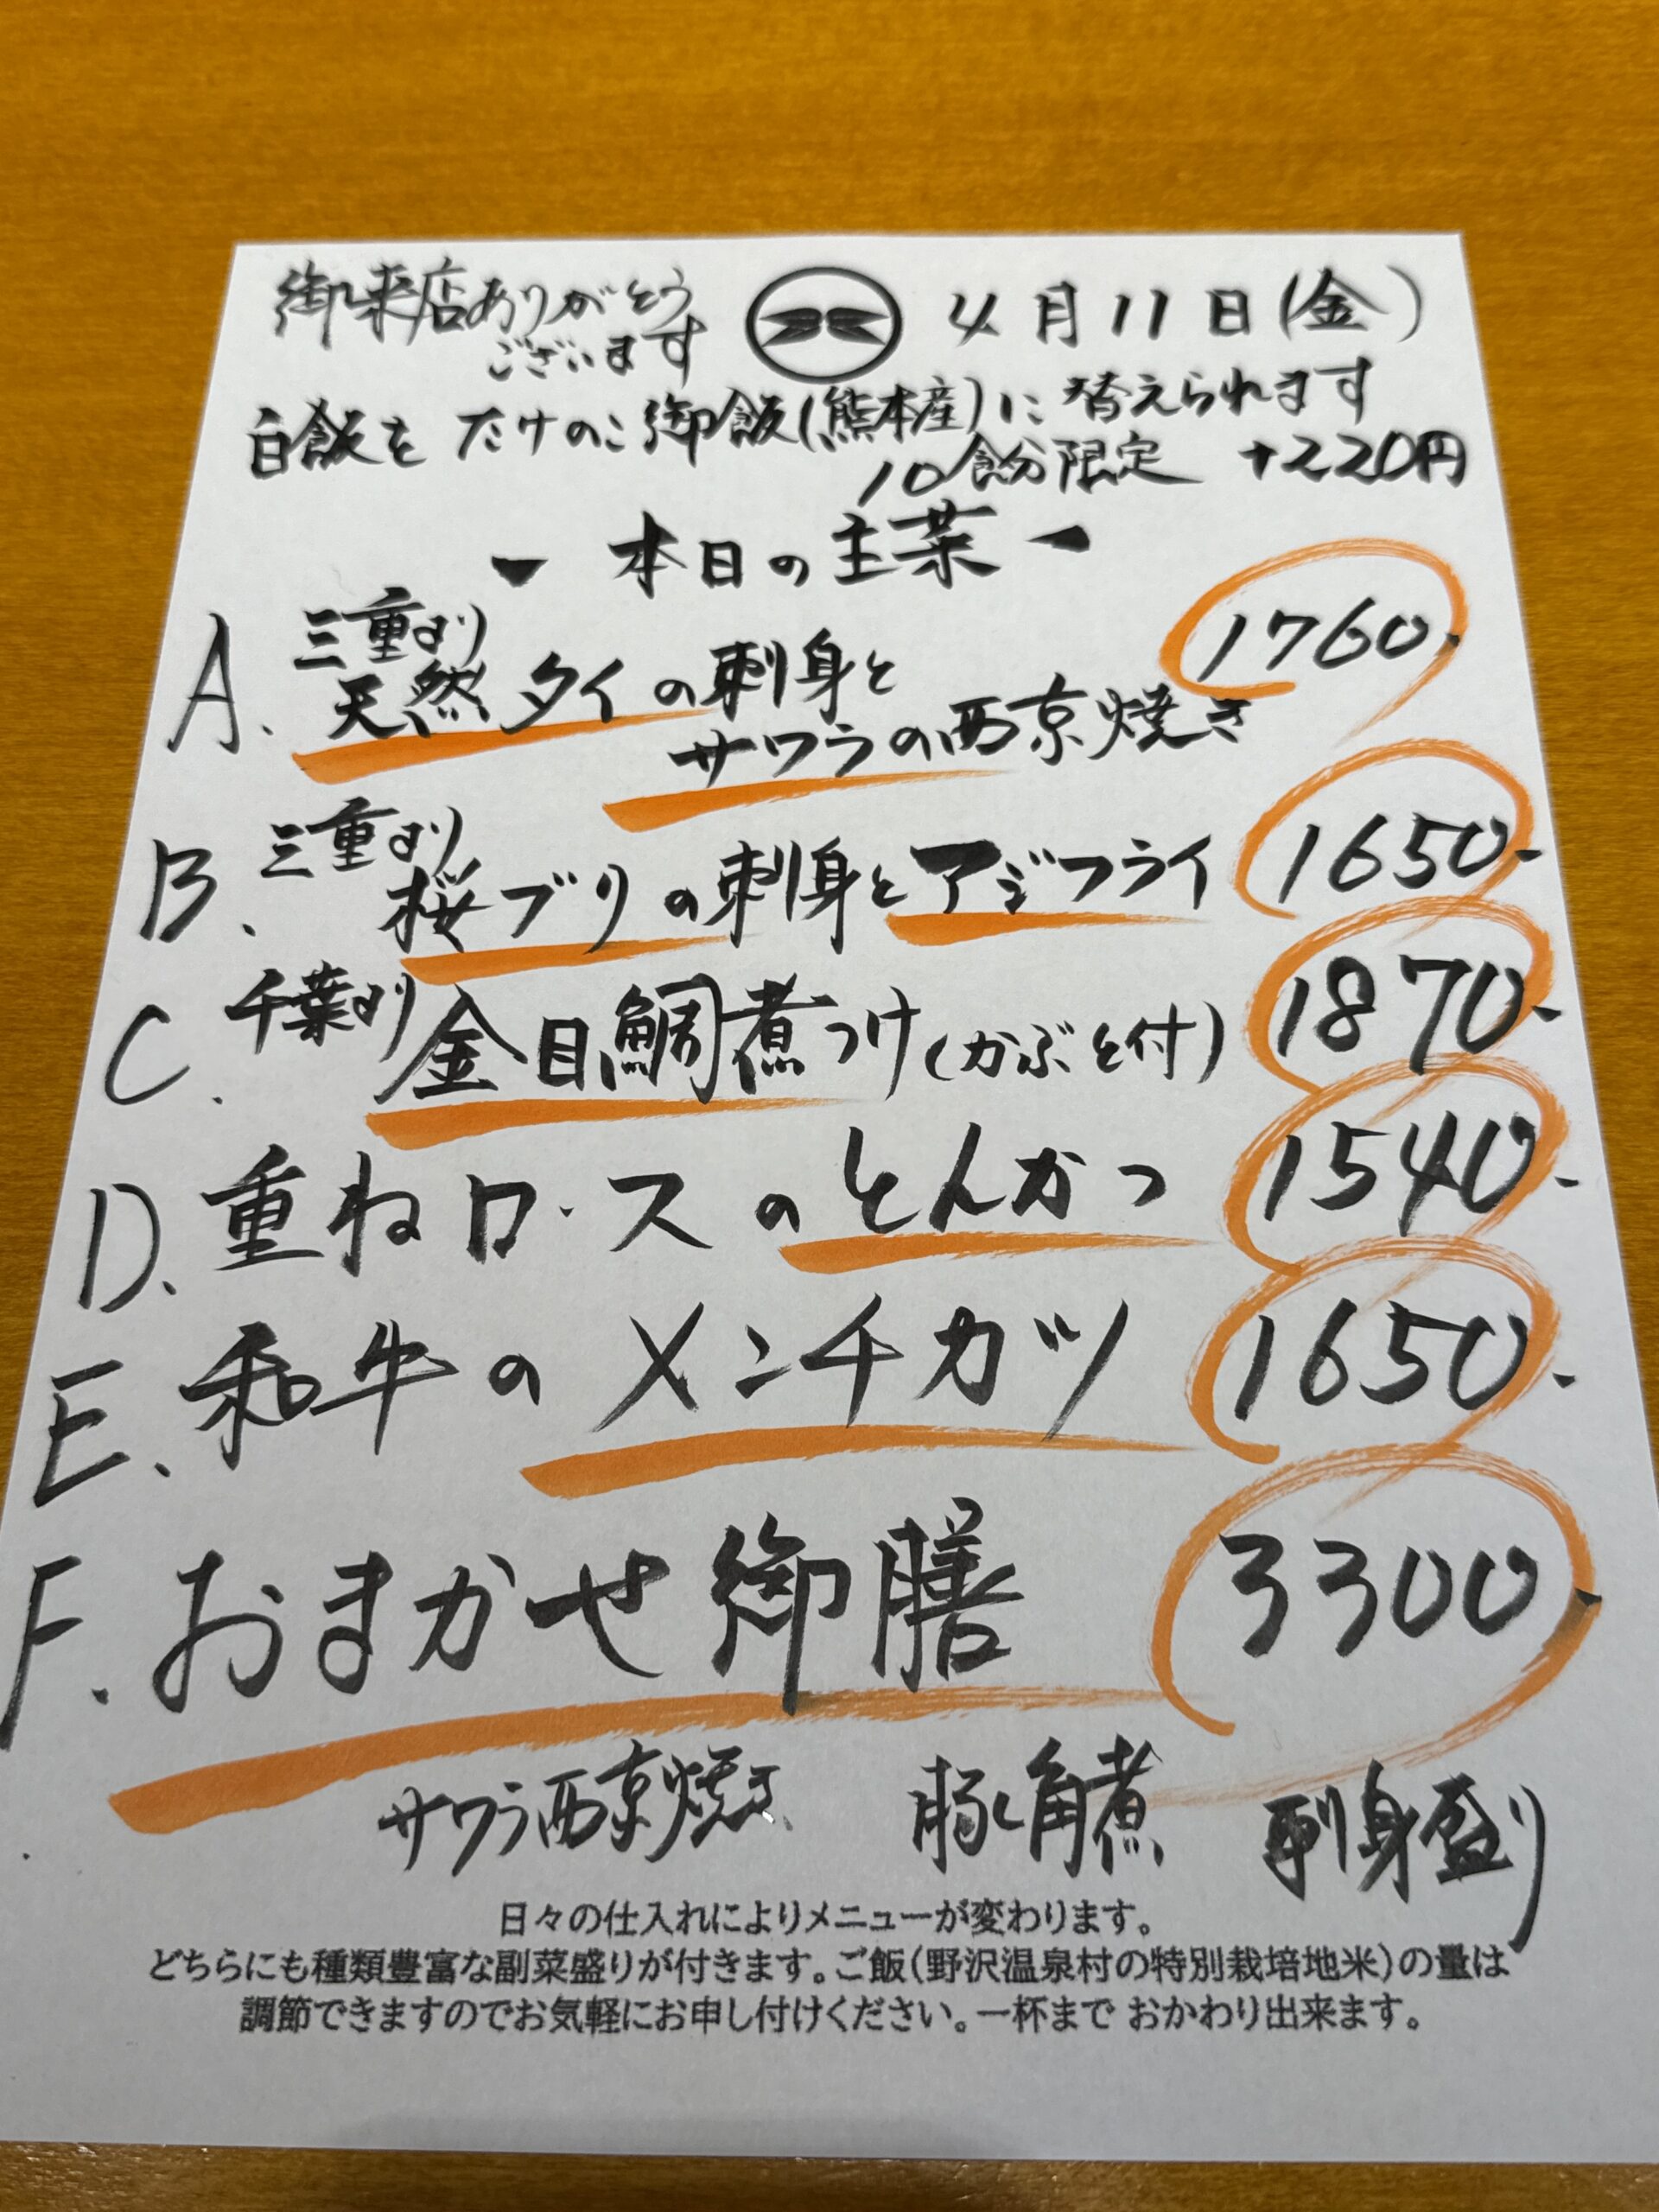 御来店ありがとう
ございます
4月11日(金)
白飯を たけのこ御飯(熊本産)に替えられます
10食分限定 +220円
- 本日の主菜 -
A. 三重より
天然タイの刺身と
サワラの西京焼き
1760.
B. 三重より
桜ブリの刺身とアジフライ 1650-
C. 千葉より 金目鯛煮つけ(かぶと付) 1870-
D. 重ねロースのとんかつ 1540-
E. 和牛のメンチカツ 1650-
F. おまかせ御膳 3300-
サワラ西京焼き 豚角煮 刺身盛り
日々の仕入れによりメニューが変わります。
どちらにも種類豊富な副菜盛りが付きます。ご飯(野沢温泉村の特別栽培地米)の量は
調節できますのでお気軽にお申し付けください。一杯まで おかわり出来ます。